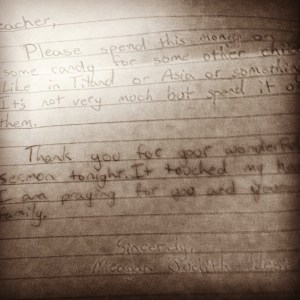 eacher,
Please spend this money on
some candy for some other chil
Like in Tiland or Asia or somethin
It's not very much but spend it o
them.
Thank you for your wonderful
sermon tonight. It touched my he
I am praying for you and your
family.
Sincerely,
Meagan